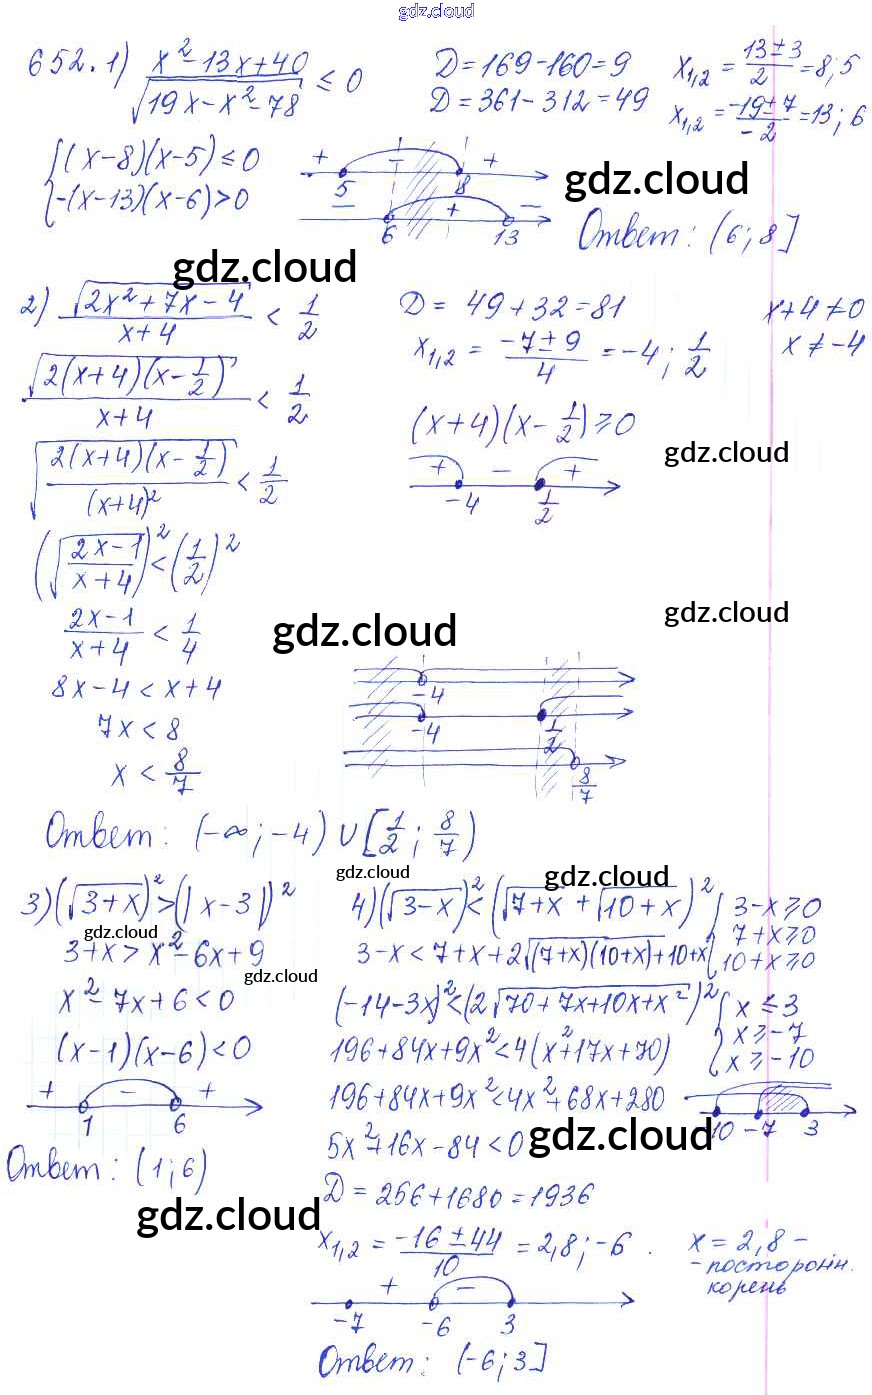 gdz.cloud
652. 1) (x² - 13x + 40)/√(19x - x² - 78) ≤ 0
D = 169 - 160 = 9
x₁,₂ = (13 ± 3)/2 = 8; 5
D = 361 - 312 = 49
x₁,₂ = (-19 ± 7)/-2 = 13; 6
{(x-8)(x-5) ≤ 0
{-(x-13)(x-6) > 0
+ - +
5 8
- + -
6 13
gdz.cloud
Ответ: (6; 8]
gdz.cloud
2) √(2x² + 7x - 4)/(x+4) < 1/2
D = 49 + 32 = 81
x+4 ≠ 0
x₁,₂ = (-7 ± 9)/4 = -4; 1/2
x ≠ -4
√(2(x+4)(x - 1/2))/(x+4) < 1/2
(x+4)(x - 1/2) ≥ 0
gdz.cloud
√(2(x+4)(x - 1/2)/(x+4)²) < 1/2
+ - +
-4 1/2
(√((2x-1)/(x+4)))² < (1/2)²
gdz.cloud
(2x-1)/(x+4) < 1/4
gdz.cloud
8x - 4 < x + 4
-4
7x < 8
-4 1/2
x < 8/7
8/7
Ответ: (-∞; -4) ∪ [1/2; 8/7)
gdz.cloud
gdz.cloud
3) (√(3+x))² > (|x-3|)²
gdz.cloud
3+x > x² - 6x + 9
gdz.cloud
x² - 7x + 6 < 0
(x-1)(x-6) < 0
+ - +
1 6
Ответ: (1; 6)
gdz.cloud
4) (√(3-x))² < (√(7+x) + √(10+x))²
{3-x ≥ 0
{7+x ≥ 0
{10+x ≥ 0
3-x < 7+x+2√((7+x)(10+x))+10+x
(-14-3x)² < (2√(70+7x+10x+x²))²
{x ≤ 3
{x ≥ -7
{x ≥ -10
196+84x+9x² < 4(x²+17x+70)
196+84x+9x² < 4x²+68x+280
-10 -7 3
5x²+16x-84 < 0
gdz.cloud
D = 256+1680 = 1936
x₁,₂ = (-16 ± 44)/10 = 2,8; -6.
x = 2,8 -
- посторонн.
корень
+ -
-7 -6 3
Ответ: (-6; 3]